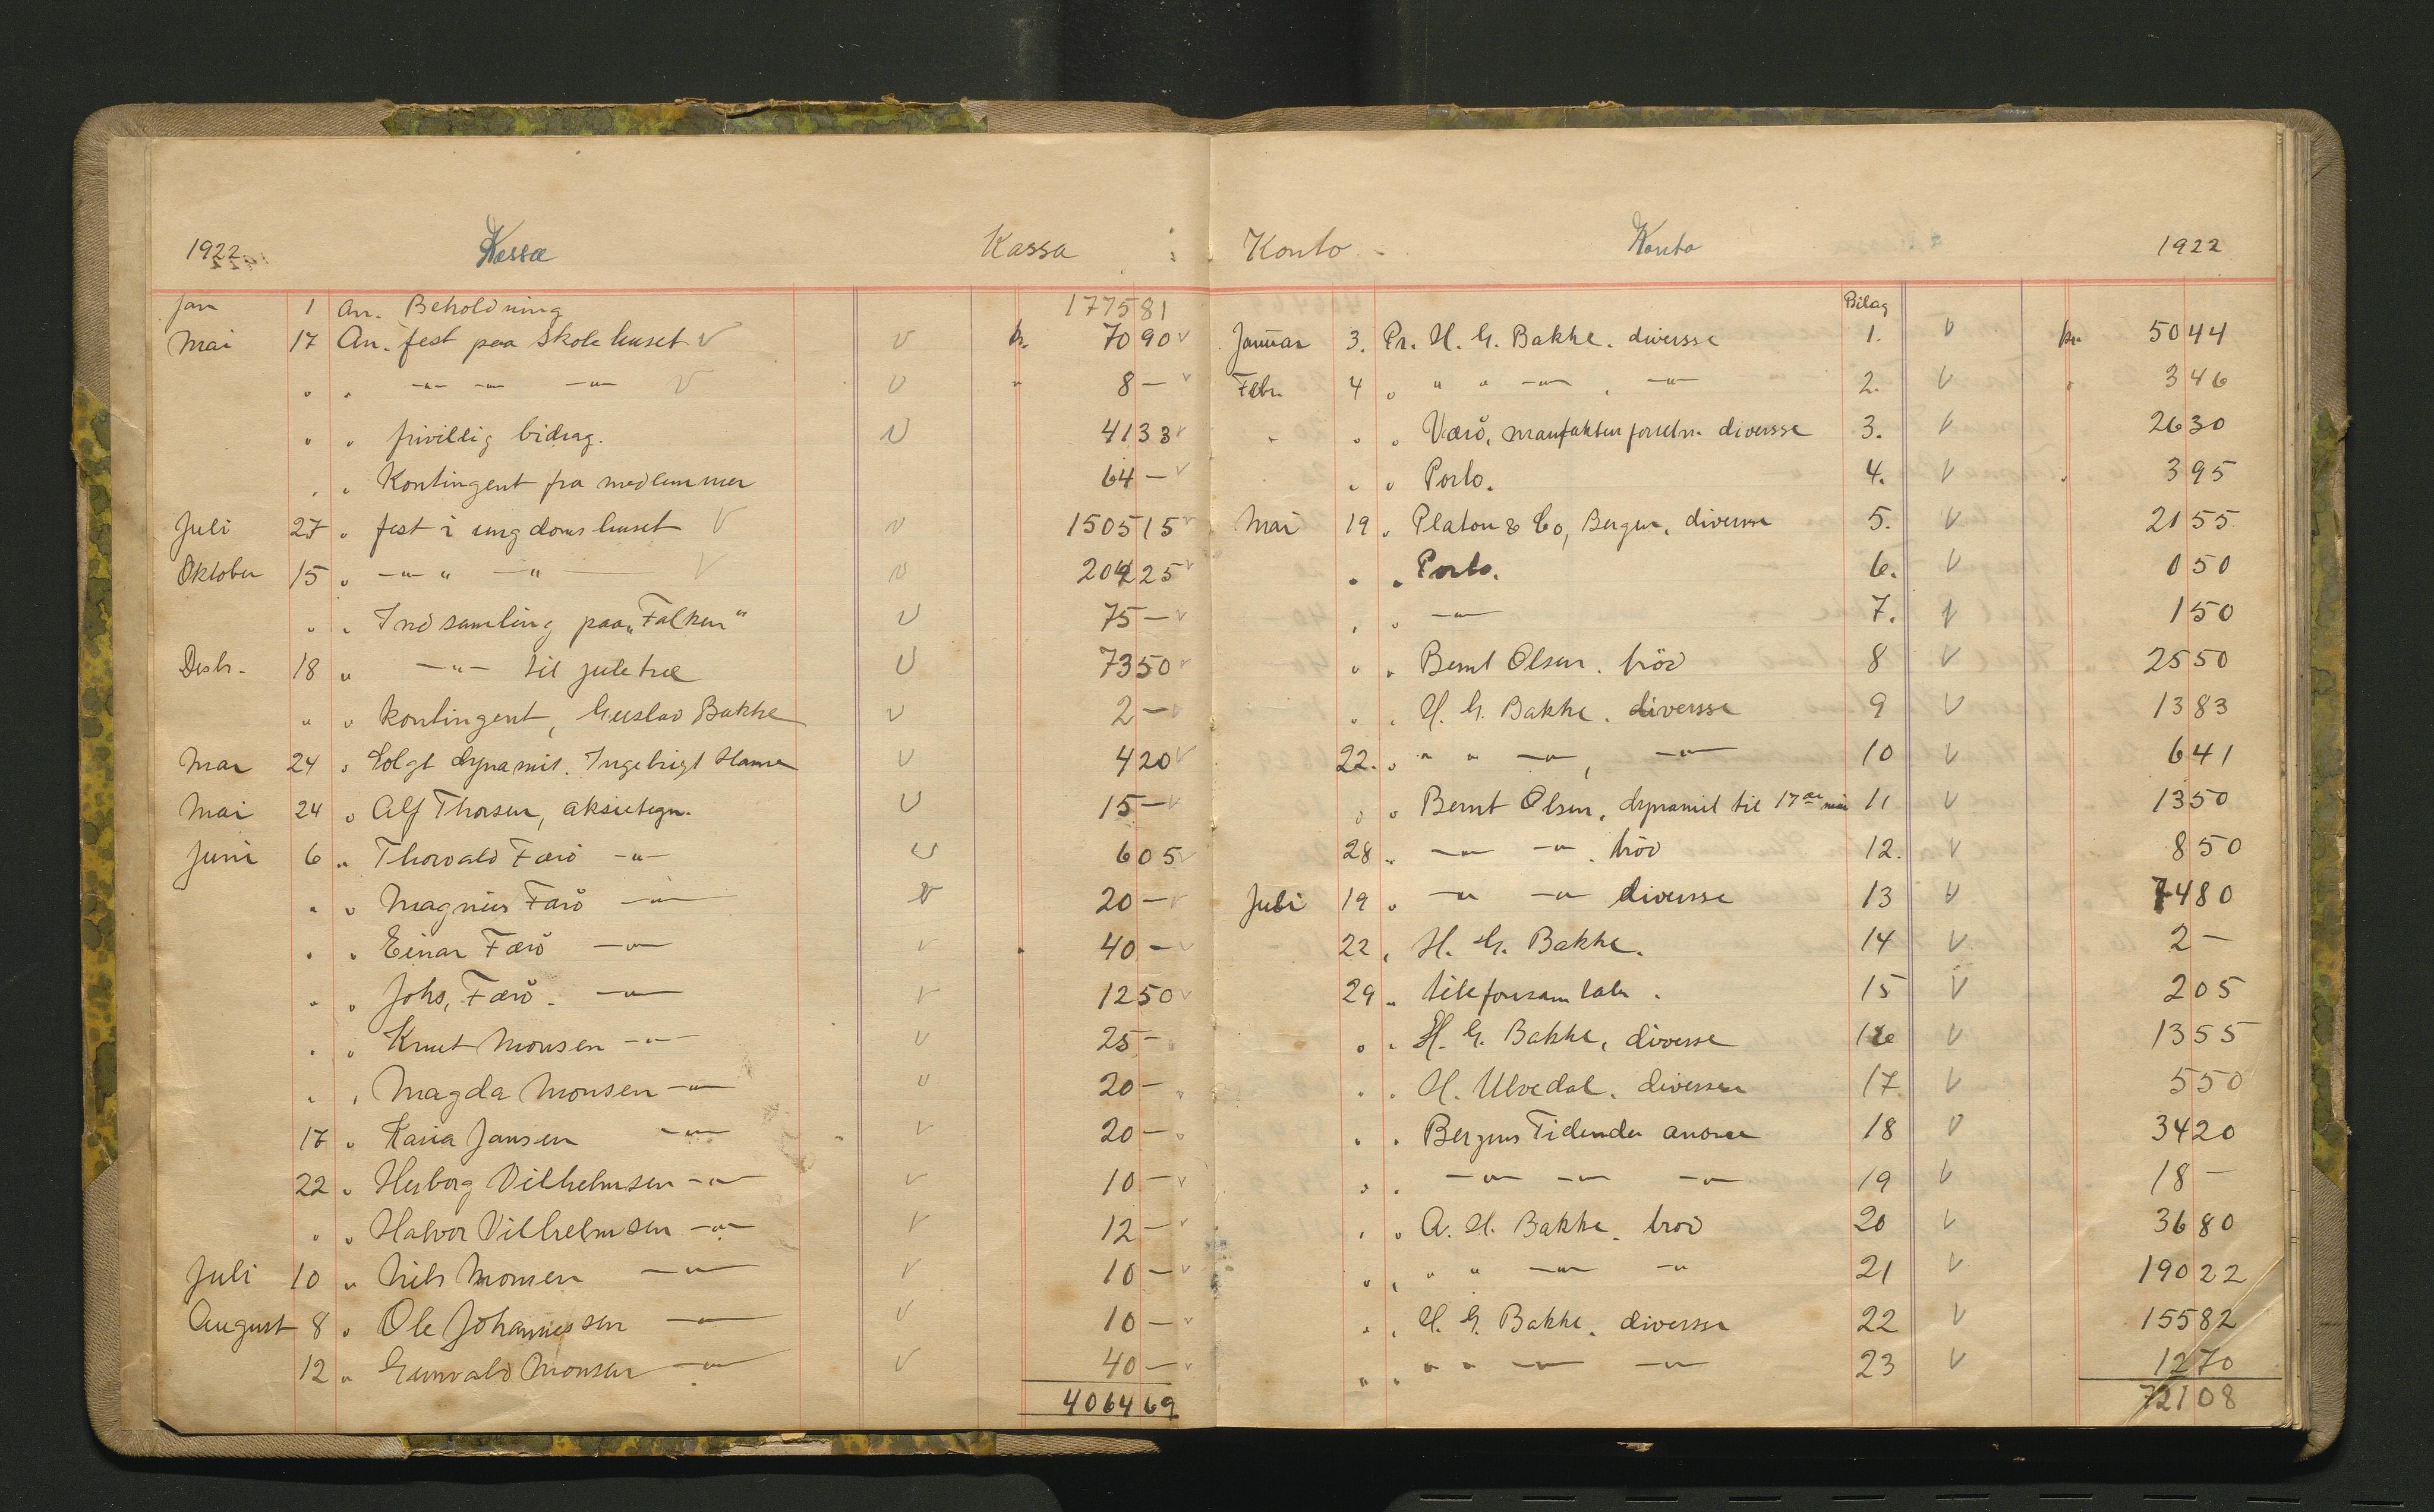 1922 Kassa Kassa
Jan 1 An. Beholdning 1775 81
Mai 17 An. fest paa skolehuset kr. 70 90
" " -"- -"- -"- " 8 -
" " frivillig bidrag. 41 33
" " Kontingent fra medlemmer 64 -
Juli 27 " fest i ungdomshuset 1505 15
Oktober 15 " -"- " -"- 204 25
" " Indsamling paa "Falken" 75 -
Desbr. 18 " -"- til juletræ 73 50
" " kontingent, Gustav Bakke 2 -
Mar 24 " Solgt dynamit. Ingebrigt Hanne 4 20
Mai 24 " Alf Thorsen, aksietegn. 15 -
Juni 6 " Thorvald Færö -"- 6 05
" " Magnus Færö -"- 20 -
" " Einar Færö -"- 40 -
" " Johs. Færö. -"- 12 50
" " Knut Monsen -"- 25 -
" " Magda Monsen -"- 20 -
17 " Karia Jansen -"- 20 -
22 " Herborg Vilhelmsen -"- 10 -
" " Halvor Vilhelmsen -"- 12 -
Juli 10 " Nils Monsen -"- 10 -
August 8 " Ole Johannessen -"- 10 -
12 " Gunvald Monsen -"- 40 -
4064 69
Konto - Konto 1922
Bilag
Januar 3. Pr. H. G. Bakke. diversse 1. kr. 50 44
Febr. 4 " " " -"- . -"- 2. " 3 46
" " " Værö, manufakturforretn. diversse 3. 26 30
" " Porto. 4. " 3 95
Mai 19 " Platou & Co, Bergen, diversse 5. 21 55
" " Porto. 6. 0 50
" " -"- 7. 1 50
" " Bernt Olsen. bröd 8 25 50
" " H. G. Bakke. diversse 9 13 83
22. " " " -"- , -"- 10 6 41
" " Bernt Olsen, dynamit til 17de mai 11 13 50
28 " -"- -"- . bröd 12. 8 50
Juli 19 " -"- -"- diversse 13 74 80
22 " H. G. Bakke. 14 2 -
29 " telefonsamtaler . 15 2 05
" " H. G. Bakke, diversse 16 13 55
" " H. Ulvedal. diversse 17 5 50
" " Bergens Tidende anonse 18 34 20
" " -"- -"- -"- 19 18 -
" " A. H. Bakke. bröd 20 36 80
" " " " -"- -"- 21 190 22
" " H. G. Bakke. diversse 22 155 82
" " " " -"- -"- 23 12 70
721 08